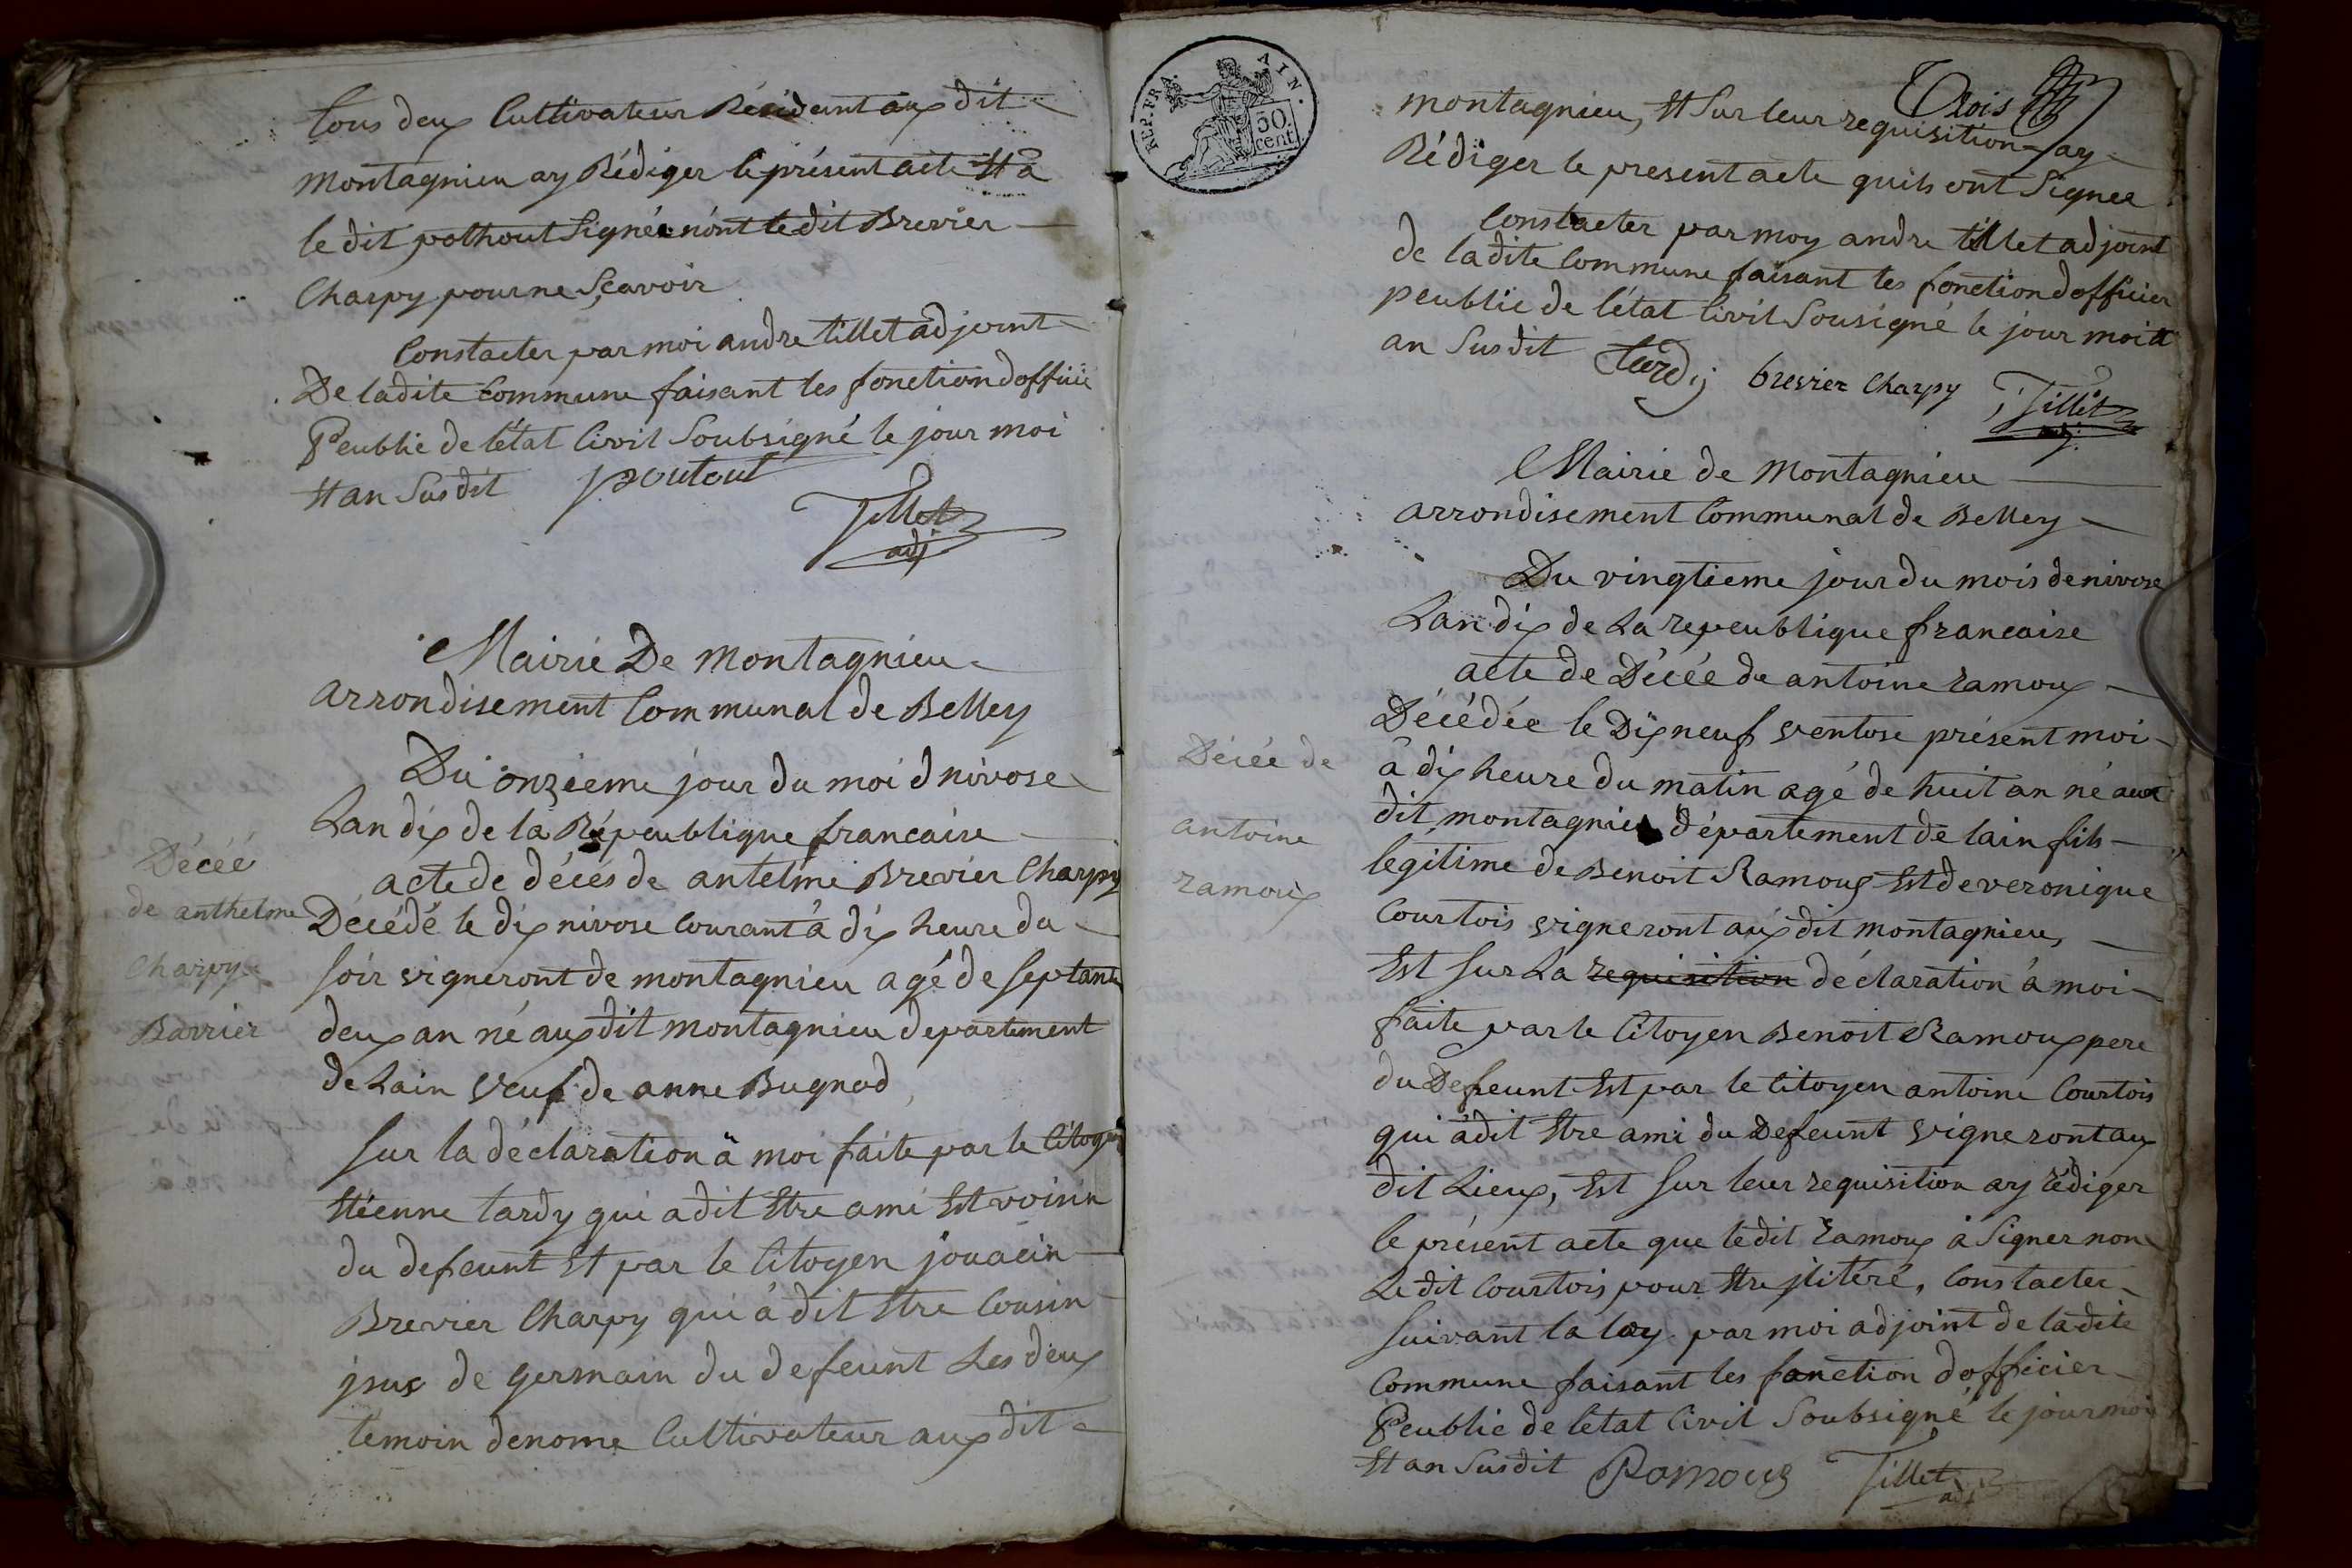 tous deux Cultivateur Résident aux dit
montagnieu ay Rédiger le présent acte Et a
le dit pothout Signée nont le dit Brevier
Charpy pour ne Sçavoir
Constacter par moi andre tillet adjoint
De ladite Commune faisant les fonction doffici
Peublic de létat Civil Soubsigné le jour moi
Et an Susdit poutout
Tillet
adj
Mairie De montagnieu
arrondisement Communal de Belley
Du onzieme jour du moi d nivose
Lan dix de la Répeublique francaise
Décéé
de anthelme
Charpy
Barrier
acte de décés de antelme Brevier Charpy
Décédé le dix nivose Courant à dix heure du
soir vigneront de montagnieu agé de septante
deux an né aux dit montagnieu departement
de Lain Veuf de anne Bugnod
sur la déclaration à moi faite par le Citoyen
Etienne tardy qui a dit Etre ami Est voisin
du defeunt Et par le Citoyen jouacin
Brevier Charpy qui à dit Etre Cousin
jsus de germain du defeunt Les deux
temoin denome Cultivateur aux dit
REP. FRA. AIN.
50 cent
Trois
montagnieu, Et Sur leur requisition ay
Rédiger le present acte quils ont Signee
Constacter par moy andre tillet adjoint
de ladite Commune faisant les fonction dofficier
peublic de létat Civil Sousigné le jour moi Et
an Susdit tardy brevier Charpy Tillet
adj.
Mairie de montagnieu
arrondisement Communal de Belley
Du vingtieme jour du mois de nivose
Lan dix de La repeublique francaise
acte de Décée de antoine ramoux
Décée de
antoine
ramoux
Décédée le Dix neuf ventose présent moi
à dix heure du matin agé de huit an né aux
dit montagnieu département de lain fils
legitime de Benoit Ramoux Est de veronique
Courtois vigneront aux dit montagnieu,
Est sur La requisition déclaration à moi
faite par le Citoyen Benoit Ramoux pere
du Defeunt Est par le Citoyen antoine Courtois
qui à dit Etre ami du Defeunt vigneront aux
dit Lieux, Est sur leur requisition ay rédiger
le présent acte que ledit ramoux à Signer non
Le dit Courtois pour Etre jlitéré, Constacter
suivant la loy par moi adjoint de ladite
Commune faisant les fonction dofficier
Peublic de létat Civil Soubsigné le jour moi
Et an Susdit Ramoux Tillet
adj